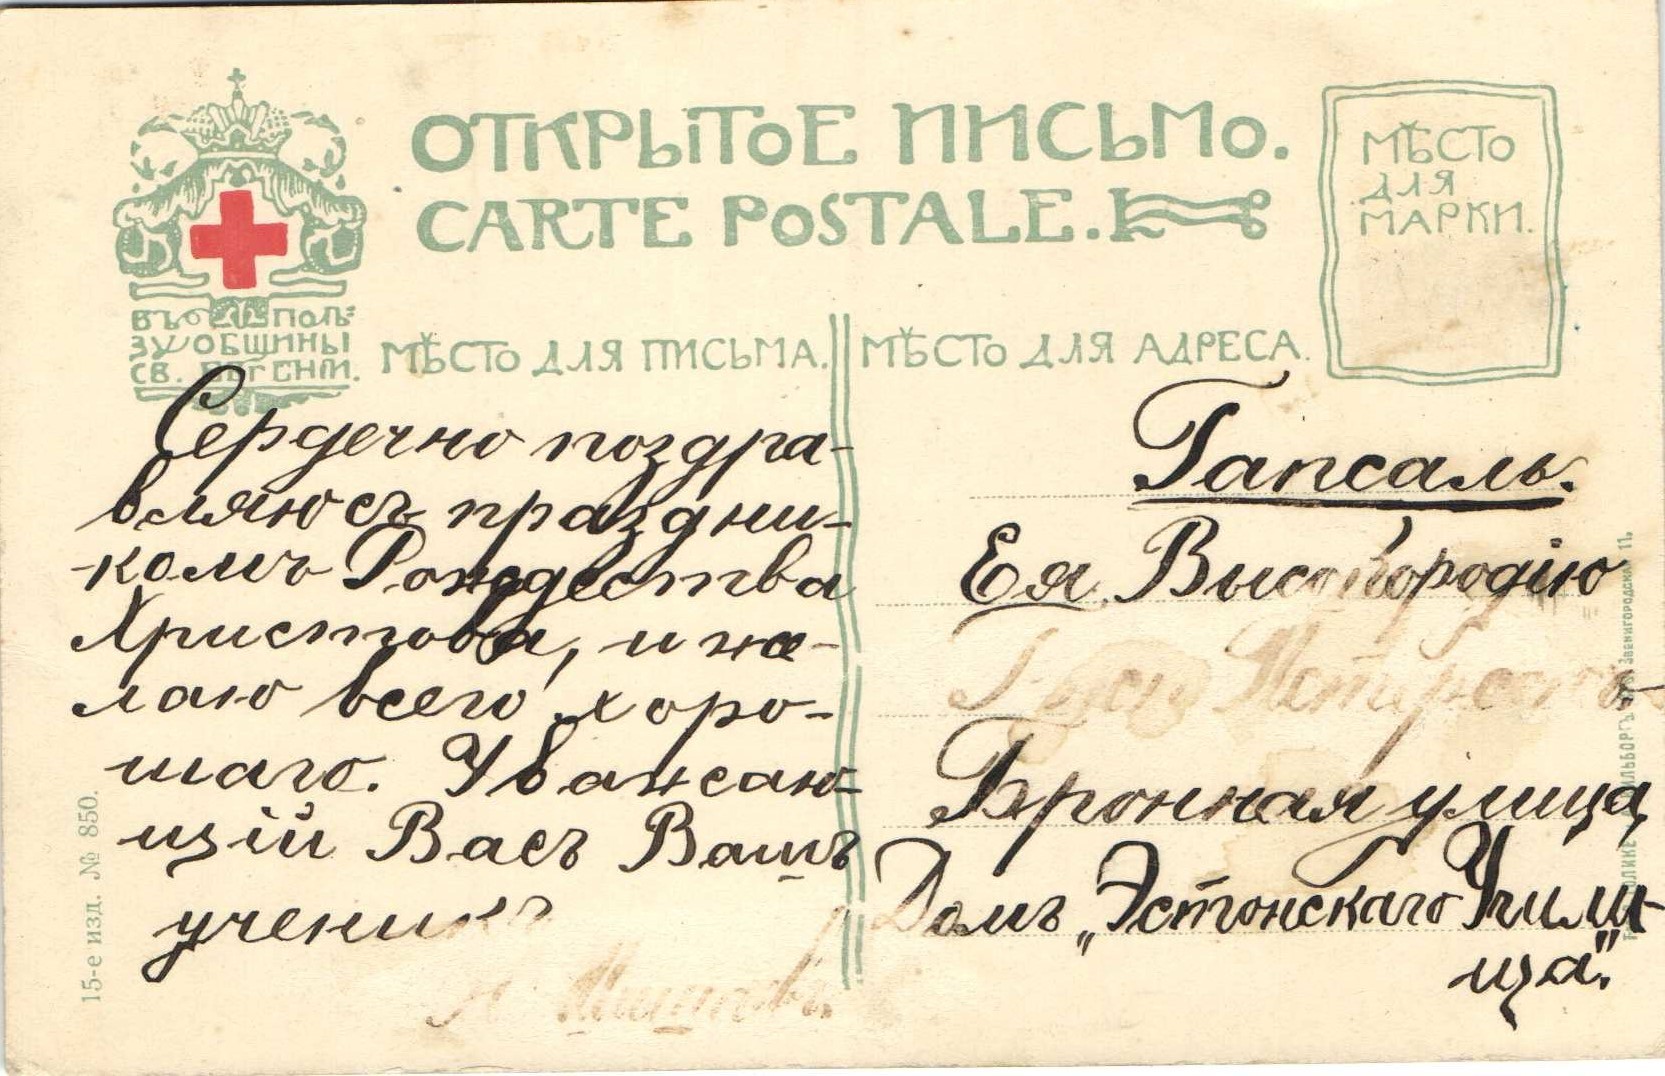 ОТКРЫТОЕ ПИСЬМО.
CARTE POSTALE.
МѢСТО
ДЛЯ
МАРКИ.
ВЪ ПОЛЬ-
ЗУ ОБЩИНЫ
СВ. ЕВГЕНІИ.
МѢСТО ДЛЯ ПИСЬМА.
МѢСТО ДЛЯ АДРЕСА.
Сердечно поздра-
вляю съ праздни-
комъ Рождества
Христова, и же-
лаю всего хоро-
шаго. Уважаю-
щій Васъ Вашъ
ученикъ
Гапсаль.
Ея Высокородію
Бронная улица
Домъ „Эстонскаго Учили-
ща".
15-е изд. № 850.
Звенигородская 11.